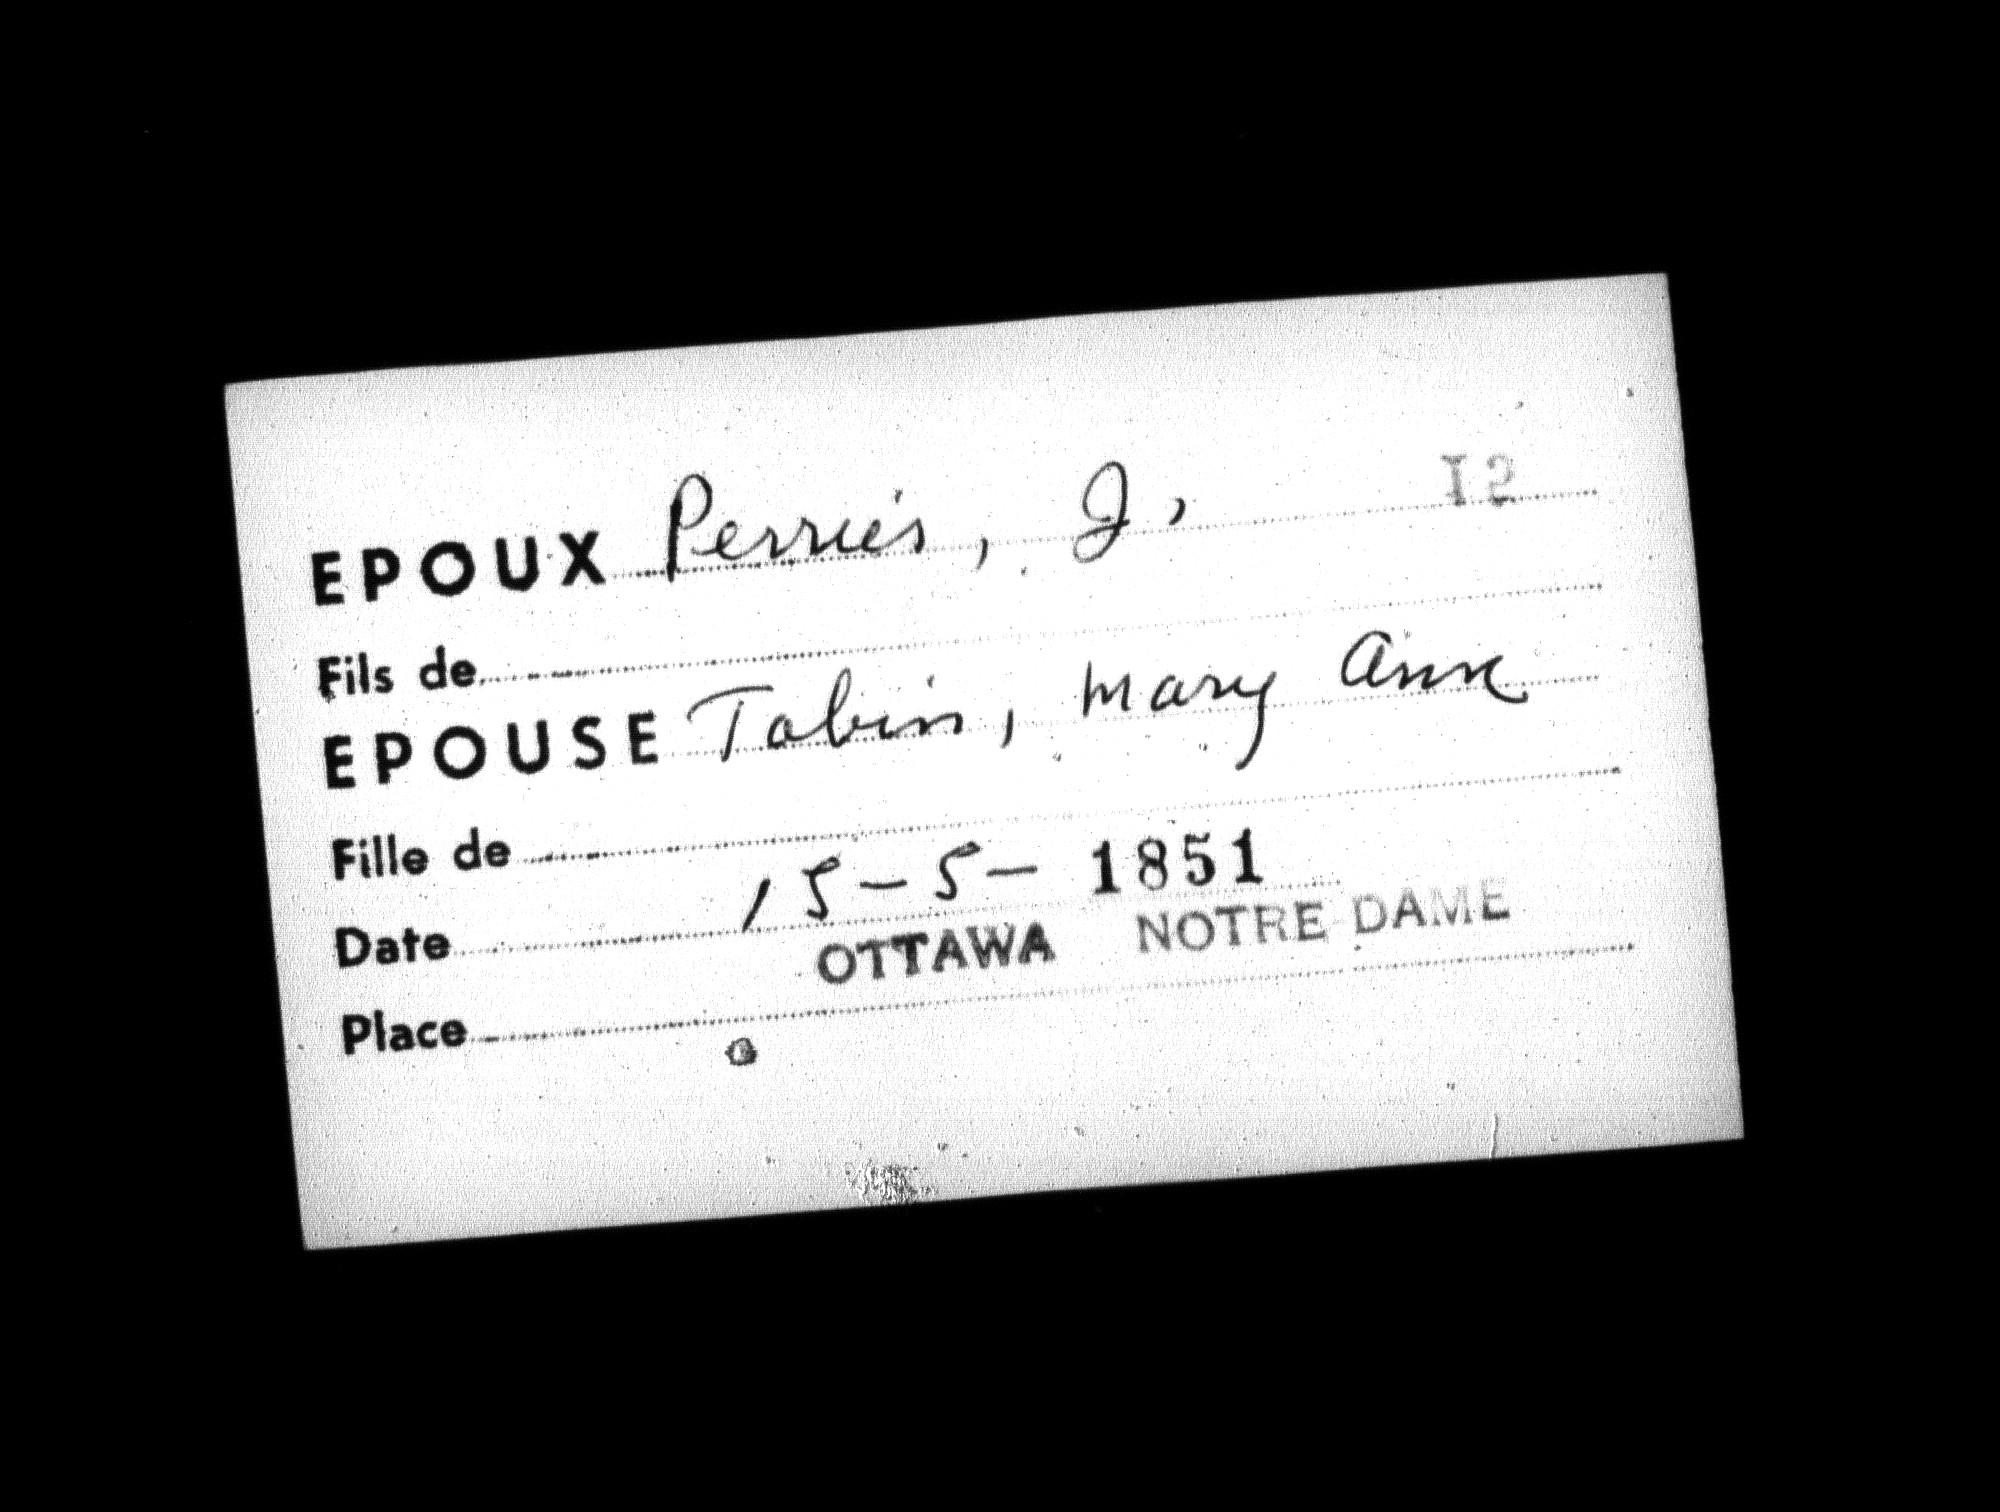 EPOUX Perrier, J, 12
Fils de
EPOUSE Tobin, Mary Ann
Fille de
Date 15-5-1851
OTTAWA NOTRE DAME
Place